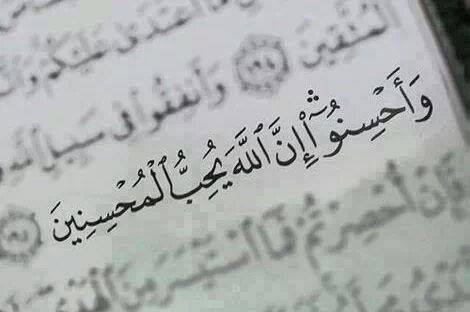 مَا ٱعْتَدَىٰ عَلَيْكُمْ
ٱلْمُتَّقِينَ ١٩٤ وَأَنفِقُوا۟ فِى سَبِيلِ ٱللَّهِ
وَأَحْسِنُوٓا۟ۛ إِنَّ ٱللَّهَ يُحِبُّ ٱلْمُحْسِنِينَ ١٩٥
فَإِنْ أُحْصِرْتُمْ فَمَا ٱسْتَيْسَرَ مِنَ ٱلْهَدْىِ